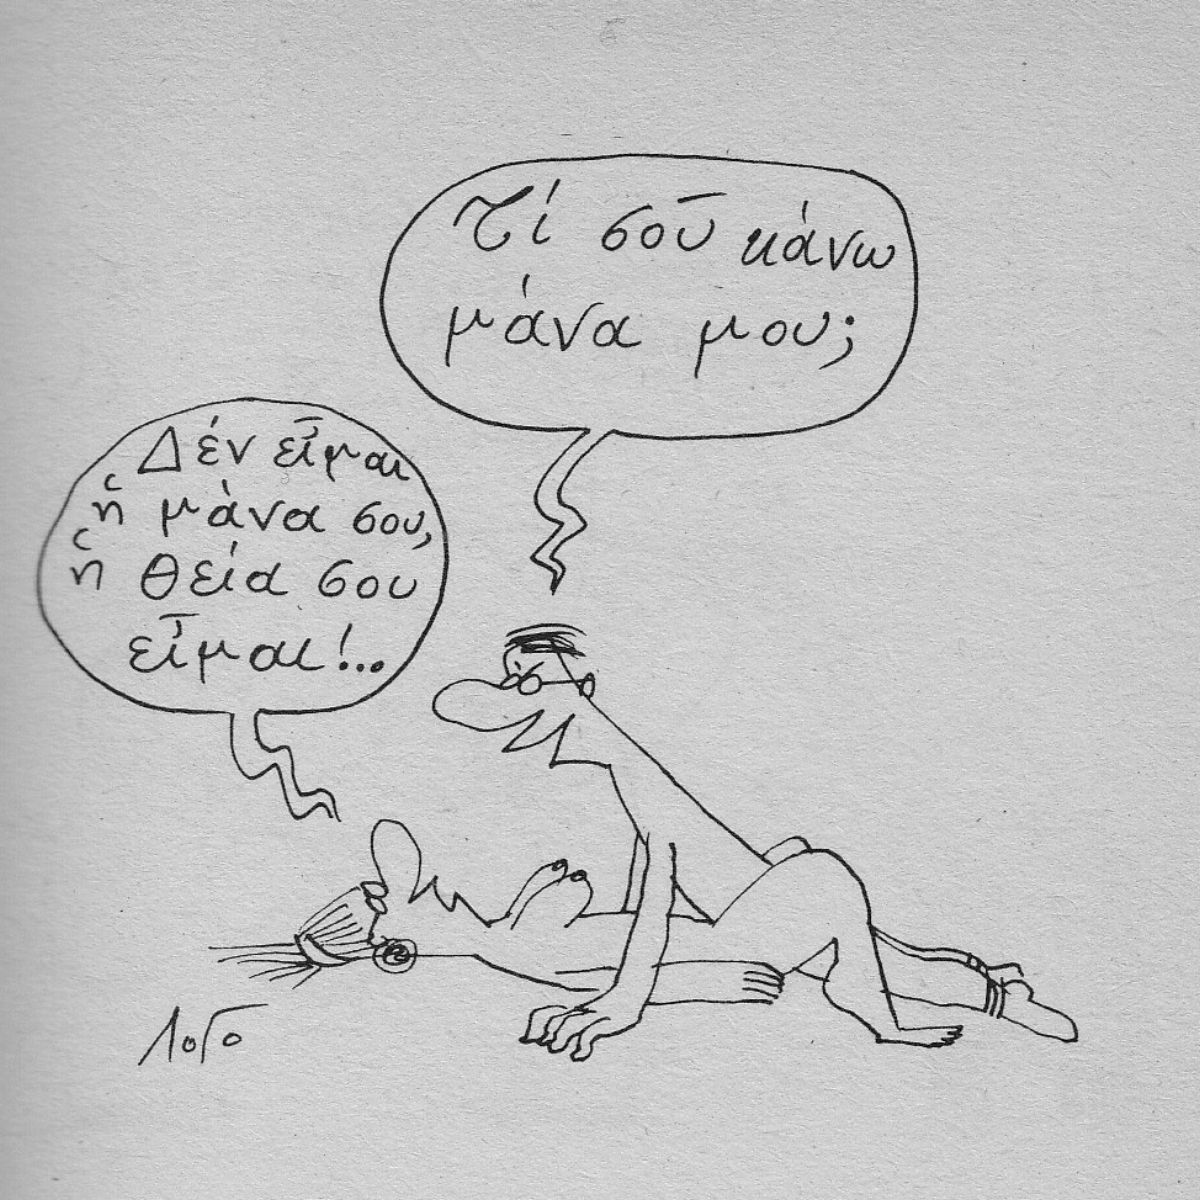 Τί σοῦ κάνω
μάνα μου;
Δέν εἶμαι
ἡ μάνα σου,
ἡ θεία σου
εἶμαι!..
Λογο